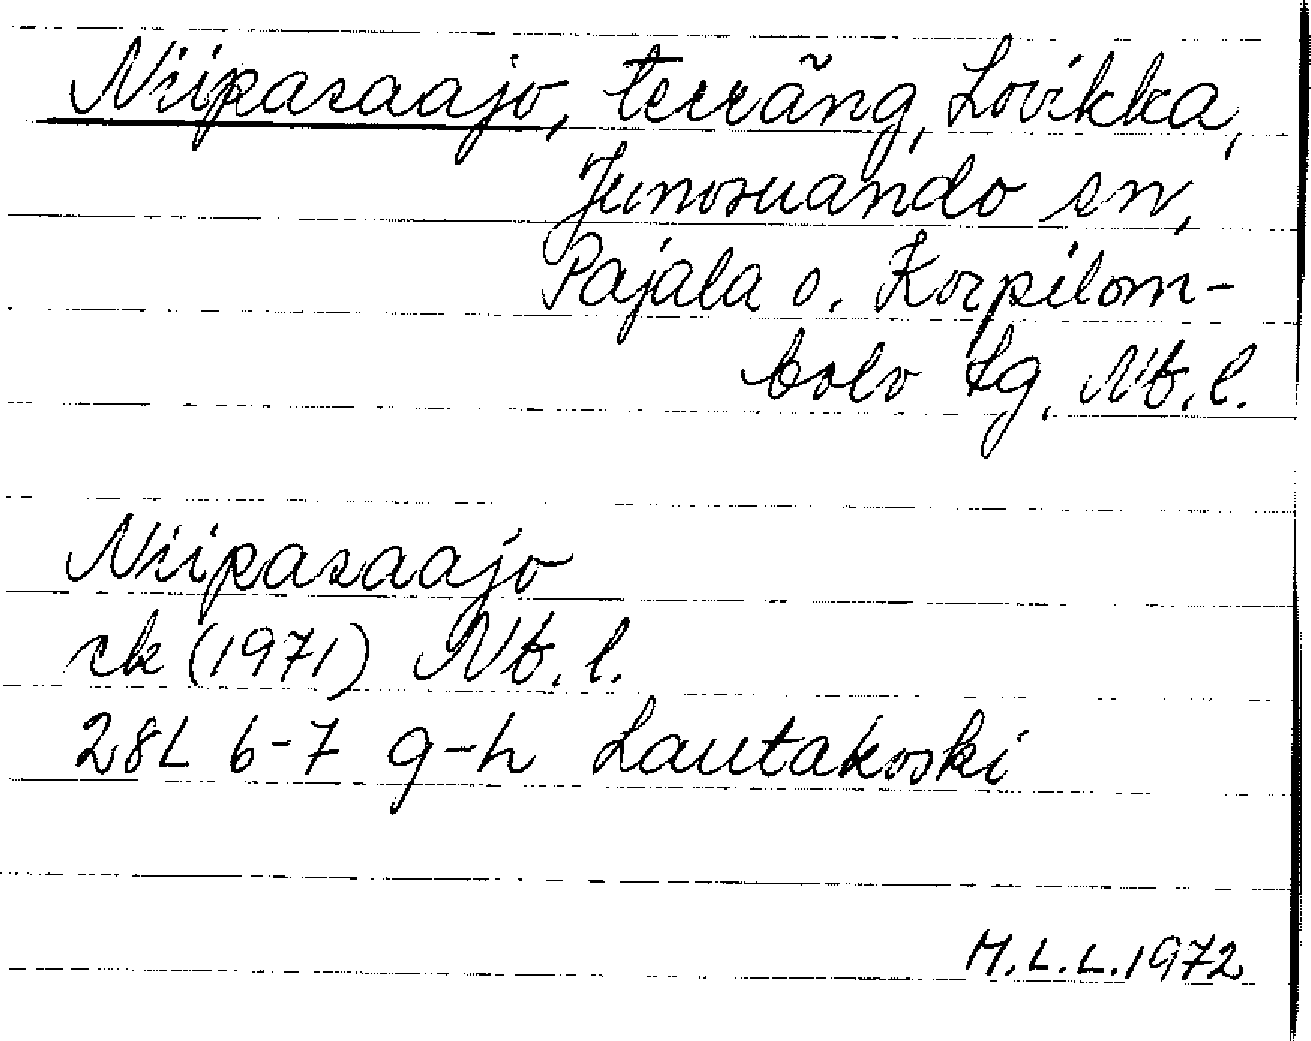 Niipasaajo, terräng, Lovikka,
Junosuando sn,
Pajala o. Korpilom-
bolo tg, Nb. l.
Niipasaajo
ek (1971) Nb. l.
28L 6-7 g-h Lautakoski
M.L.L. 1972